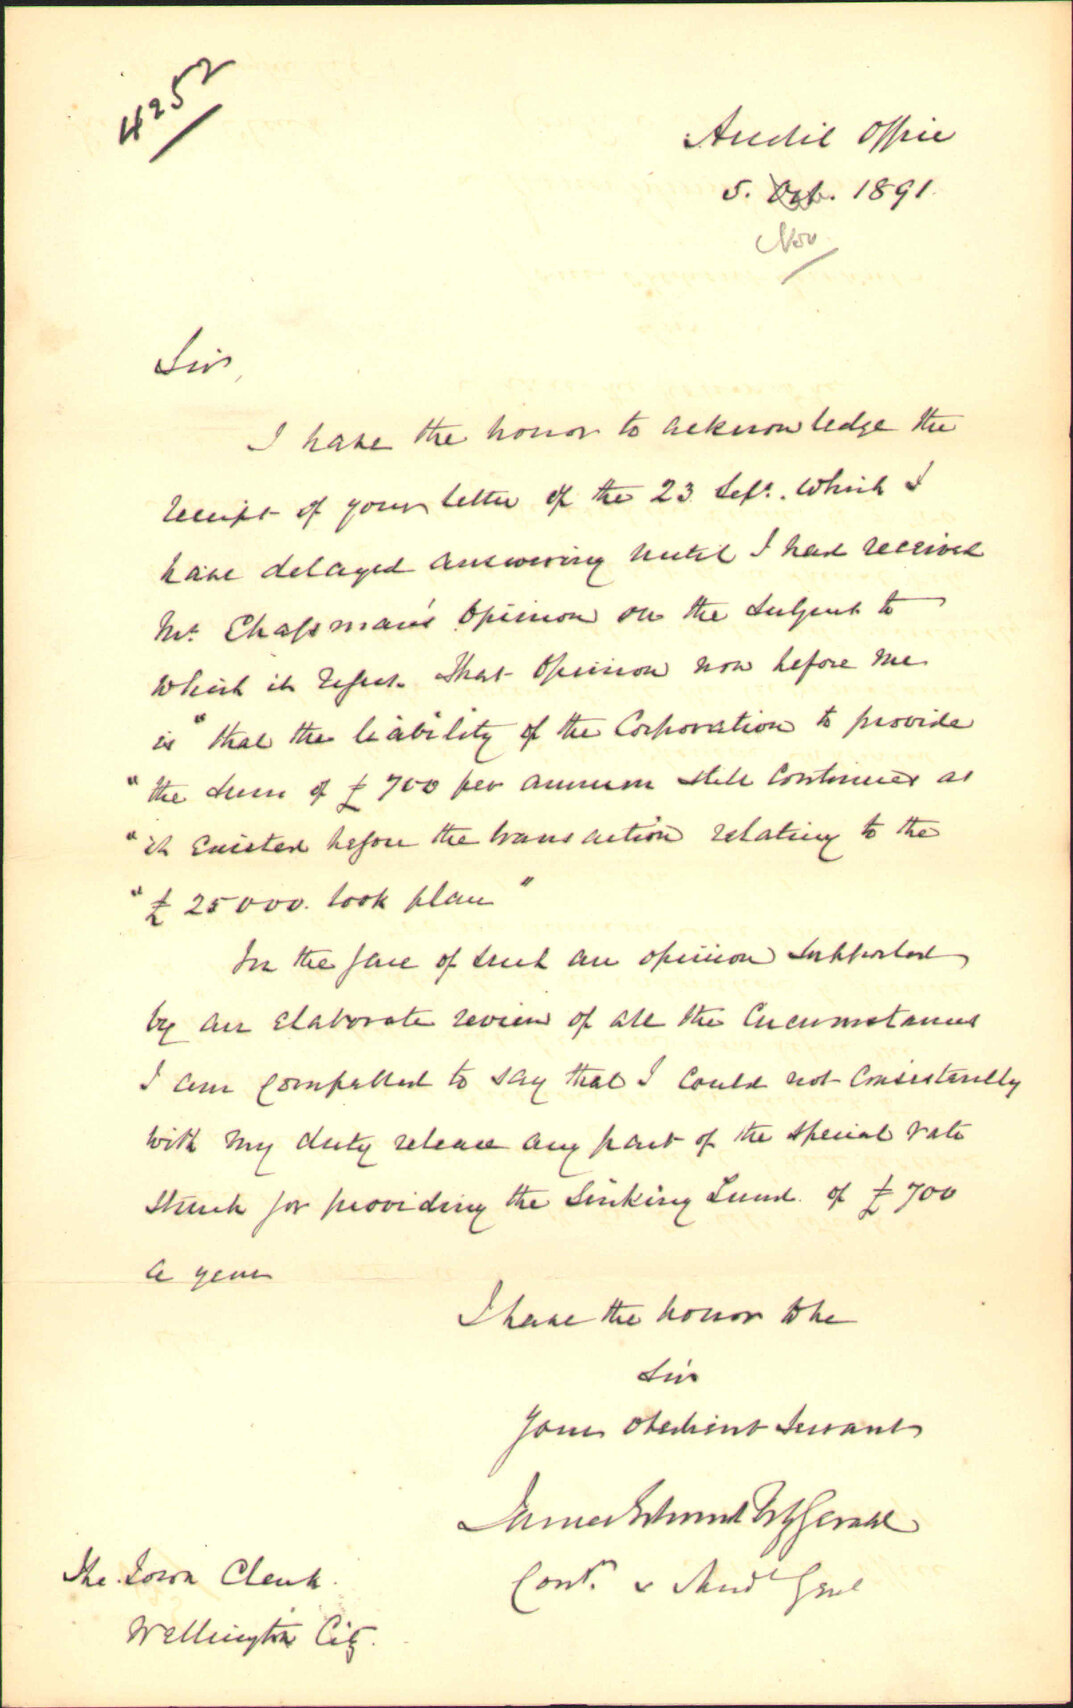 4252
Audit Office
5. Oct. 1891.
Nov.
Sir,
I have the honor to acknowledge the
receipt of your letter of the 23 Sept. which I
have delayed answering until I had received
Mr Chapman's opinion on the subject to
which it refers. That opinion now before me
is "that the liability of the Corporation to provide
"the sum of £700 per annum still continues as
"it existed before the transaction relating to the
"£25000. took place"
In the face of such an opinion supported
by an elaborate review of all the Circumstances
I am compelled to say that I could not consistently
with my duty release any part of the special rate
struck for providing the Sinking Fund of £700
a year
I have the honor to be
Sir
Your obedient Servant
James Edward FitzGerald
Cont. & Aud Genl
The Town Clerk.
Wellington City.